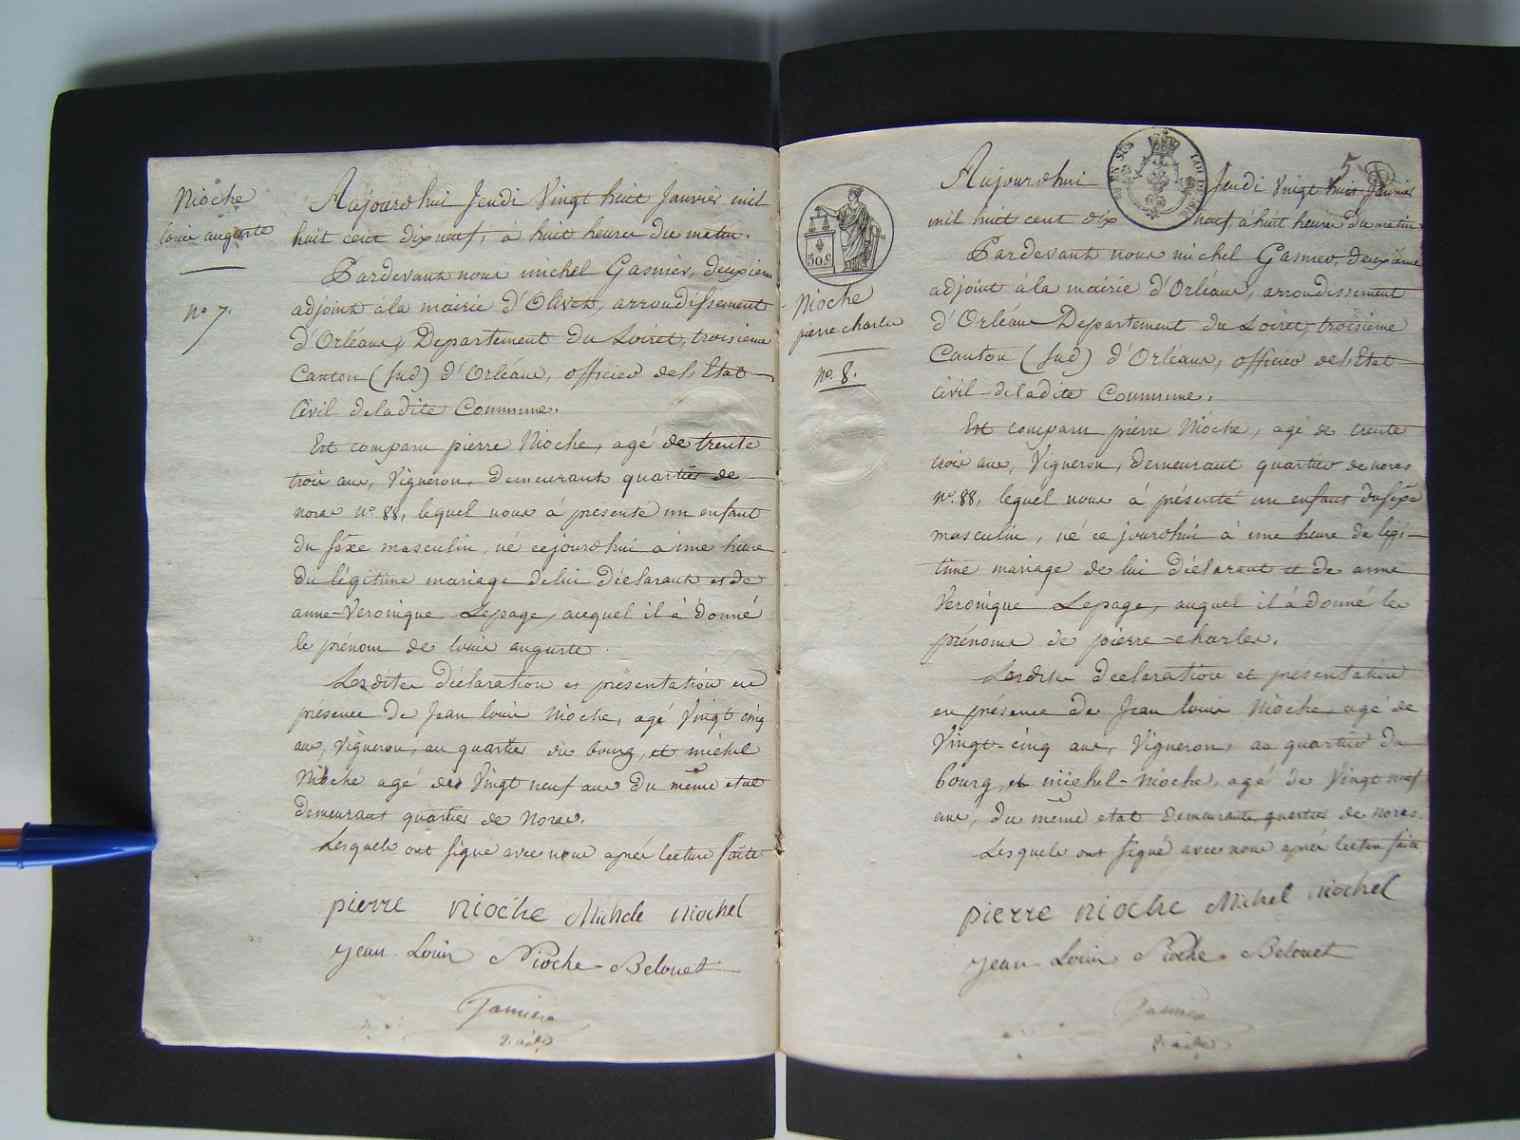 Nioche
louis auguste
n° 7.
Aujourd'hui Jeudi Vingt huit Janvier mil
huit cent dix neuf, a huit heures du matin.
Pardevant nous michel Gasnier, deuxieme
adjoint à la mairie d'Olivet, arrondissement
d'Orléans, Departement du Loiret, troisieme
Canton (sud) d'Orléans, officier de l'Etat
Civil de ladite Commune.
Est comparu pierre Nioche, agé de trente
trois ans, Vigneron, demeurant quartier de
noras n° 88, lequel nous à présenté un enfant
du sèxe masculin, né cejourd'hui à une heure
du légitime mariage de lui Déclarant et de
anne-Veronique Lepage, auquel il à donné
le prénom de louis auguste.
Lesdites déclaration et présentation en
presence de Jean louis Nioche, agé Vingt cinq
ans, Vigneron, au quartier du bourg, et michel
Nioche agé des Vingt neuf ans du même etat
demeurant quartier de Noras.
Lesquels ont signe avec nous après lecture faite
pierre nioche Michele niochel
jean Louis Nioche Belouet
Gasnier
5
Nioche
pierre charles
n° 8.
50.c
Aujourd'hui Jeudi Vingt huit Janvier
mil huit cent dix neuf, à huit heures du matin
Pardevant nous michel Gasnier, deuxième
adjoint à la mairie d'Orléans, arrondissement
d'Orléans Departement du Loiret, troisième
Canton (sud) d'Orléans, officier de l'Etat
Civil de ladite Commune.
Est comparu pierre Nioche, agé de trente
trois ans, Vigneron, demeurant quartier de noras
n°. 88, lequel nous à présenté un enfant du sèxe
masculin, né ce jourd'hui à une heure de legi-
time mariage de lui Déclarant et de anne
Veronique Lepage, auquel il à donné les
prénoms de pierre-charles.
Lesdites declaration et presentation
en présence de Jean louis Nioche agé de
Vingt-cinq ans, Vigneron, au quartier du
bourg, et michel-nioche, agé de Vingt neuf
ans, du même etat demeurante quartier de noras.
Lesquels ont signé avec nous après lecture faite
pierre nioche Michel niochel
jean Louis Nioche Belouet
Gasnier